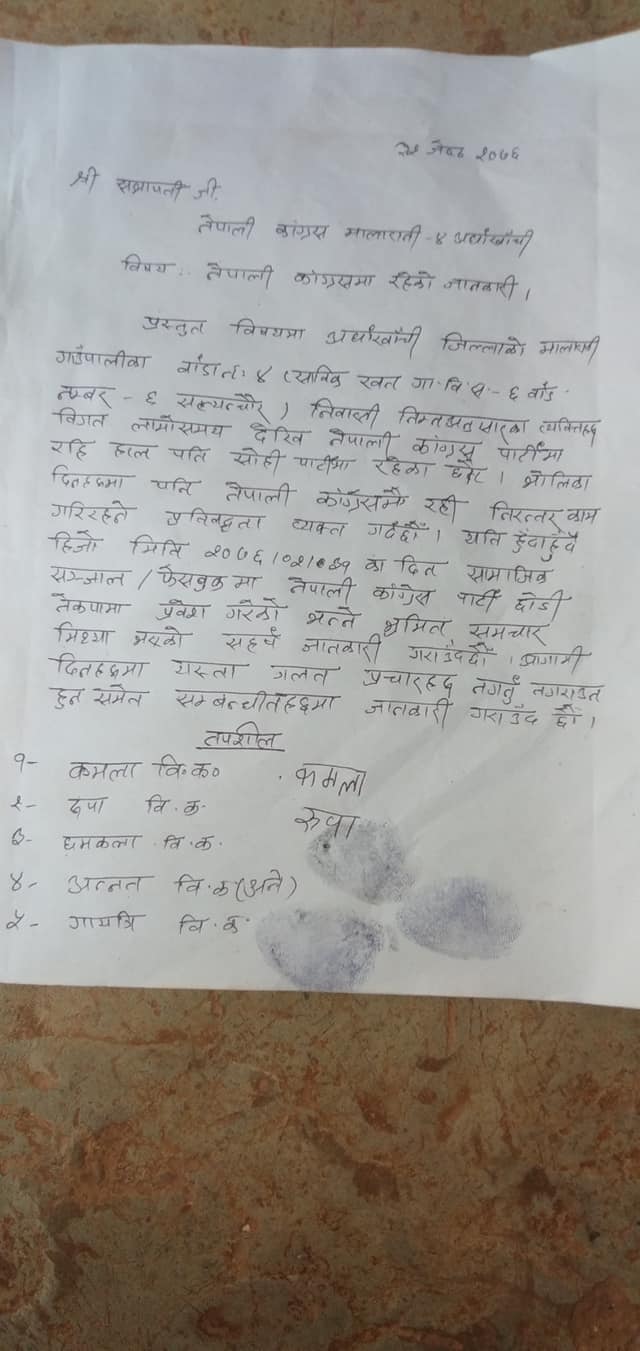 जेष्ठ २०७६
श्री सभापती जी,
नेपाली कांग्रेस मालारानी-४ अर्घाखाँची
विषय:- नेपाली कांग्रेसमा रहेको जानकारी ।
प्रस्तुत विषयमा अर्घाखाँची जिल्लाको मालारानी
गाउँपालीका वडा नं: ४ (साविक खन गा.वि.स.- ६ वडा
नम्बर - ६ ) निवासी निम्नअनुसारका व्यक्तिहरु
विगत लामोसमय देखि नेपाली कांग्रेस पार्टीमा
रहि हाल पनि सोही पार्टीमा रहेका छौं । भोलिका
दिनहरुमा पनि नेपाली कांग्रेसमै रही निरन्तर काम
गरिरहने प्रतिवद्धता व्यक्त गर्दछौं । यति हुँदाहुँदै
हिजो मिति २०७६।०२। का दिन सामाजिक
सञ्जाल / फेसबुक मा नेपाली कांग्रेस पार्टी छोडी
नेकपामा प्रवेश गरेको भन्ने भ्रमित समचार
मिथ्या भएको सहर्ष जानकारी गराउँदछौं । आगामी
दिनहरुमा यस्ता गलत प्रचारहरु नगर्नु नगराउन
हुन समेत सम्बन्धीतहरुमा जानकारी गराउँद छौं ।
तपशील
१- कमला वि.क० कमला
२- रुपा वि.क. रुपा
३- घमकला वि.क.
४- अन्नत वि.क (अने)
५- गायत्रि वि.क.